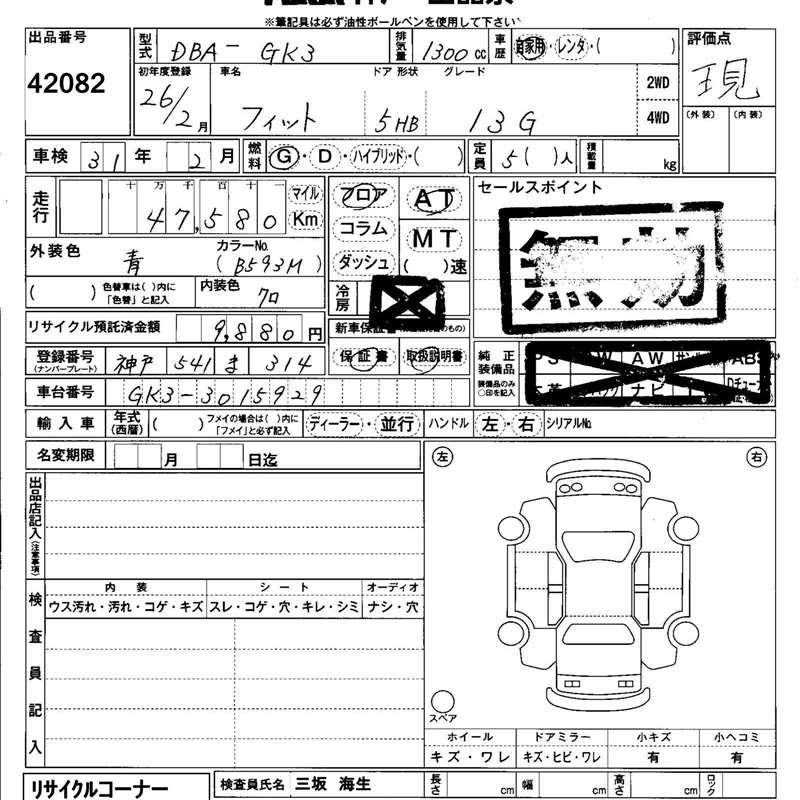 ※筆記具は必ず油性ボールペンを使用して下さい
出品番号
42082
型式 DBA- GK3
排気量 1300 cc
車歴 自家用・レンタ・( )
評価点
現
(外装) (内装)
初年度登録 26/2月
車名 フィット
ドア 形状 5HB
グレード 13G
2WD
4WD
車検 31年 2月
燃料 G・D・ハイブリッド・( )
定員 5( )人
積載量 kg
走行 十万千百十一
47,580
マイル
Km
フロア
コラム
ダッシュ
AT
MT
( )速
セールスポイント
無効
外装色 青
カラーNo. (B593M)
( ) 色替車は( )内に「色替」と記入
内装色 クロ
冷房
リサイクル預託済金額 9,880円
新車保証書
保証書 取扱説明書
登録番号 (ナンバープレート) 神戸 541 ま 314
純正装備品
装備品のみ○印を記入
AW
ABS
ナビ
車台番号 GK3-3015929
輸入車 年式(西暦) ( ) フメイの場合は( )内に「フメイ」と必ず記入
ディーラー・並行
ハンドル 左・右
シリアルNo.
名変期限 月 日迄
左 右
出品店記入(注意事項)
検査員記入
内装 シート オーディオ
ウス汚れ・汚れ・コゲ・キズ スレ・コゲ・穴・キレ・シミ ナシ・穴
スペア
ホイール ドアミラー 小キズ 小ヘコミ
キズ・ワレ キズ・ヒビ・ワレ 有 有
リサイクルコーナー
検査員氏名 三坂 海生
長さ cm 幅 cm 高さ cm ロック